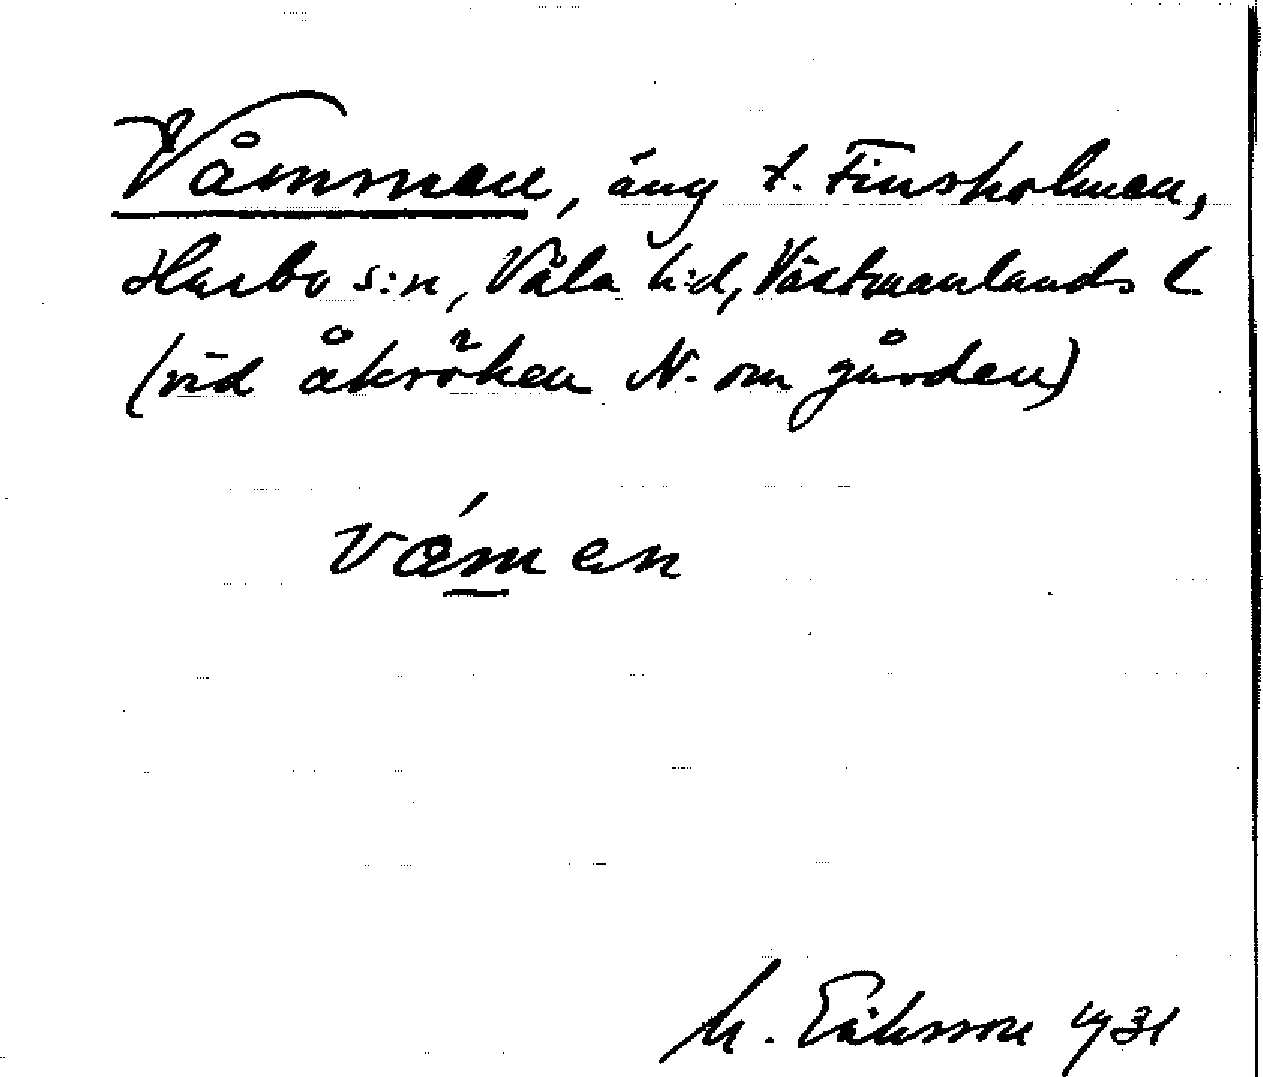 Våmmen, äng t. Finsholmen,
Harbo s:n, Våla h:d, Västmanlands l
(vid åkröken N. om gården)
våmen
M. Eriksson 1931